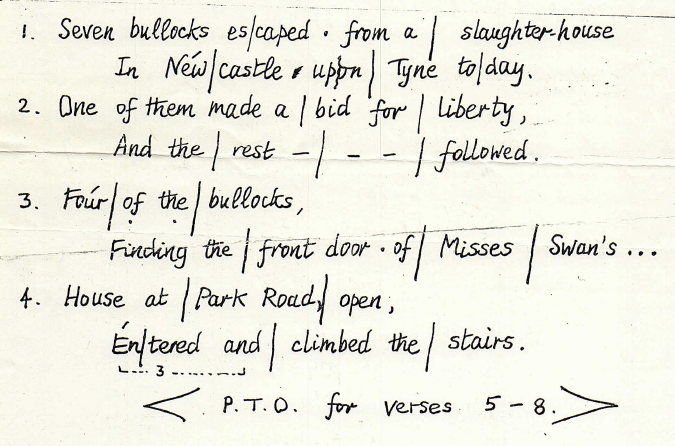 1. Seven bullocks es/caped · from a / slaughter-house
In Néw/castle · upon / Tyne to/day.
2. One of them made a / bid for / liberty,
And the / rest – / – – / followed.
3. Foúr / of the / bullocks,
Finding the / front door · of / Misses / Swan's ...
4. House at / Park Road, / open,
Én/tered and / climbed the / stairs.
3
< P.T.O. for verses 5 – 8. >